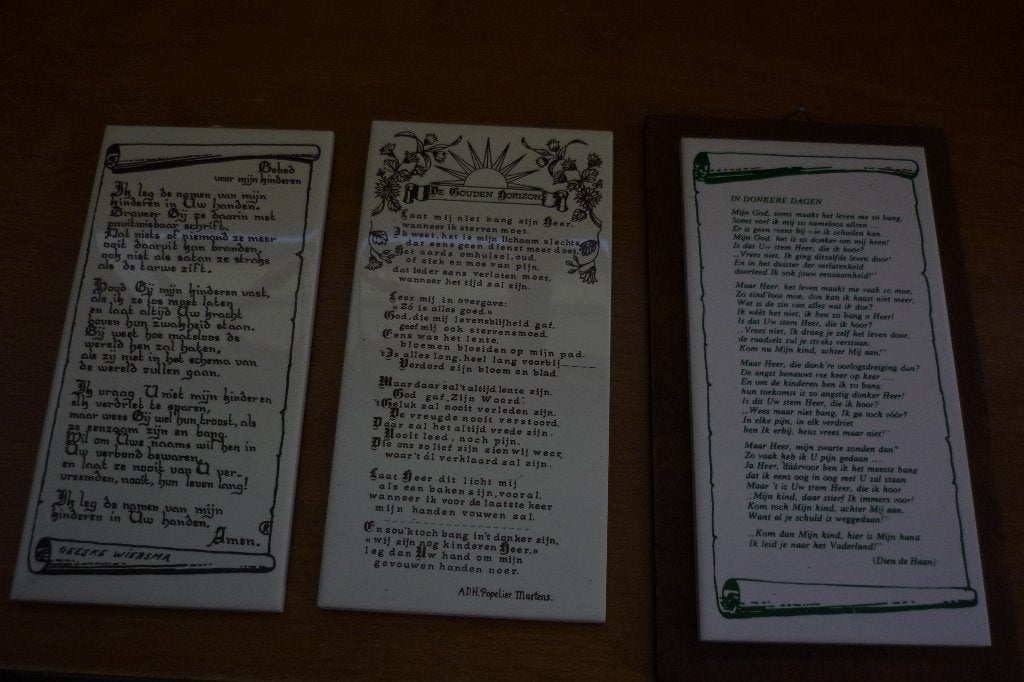 Gebed
voor mijn kinderen
Ik leg de namen van mijn
kinderen in Uw handen.
Graveer Gij ze daarin met
onuitwisbaar schrift.
Dat niets of niemand ze meer
ooit daaruit kan branden,
ook niet als satan ze straks
als de tarwe zift.
Houd Gij mijn kinderen vast,
als ik ze los moet laten
en laat altijd Uw kracht
boven hun zwakheid staan.
Gij weet hoe mateloos de
wereld hen zal haten,
als zy niet in het schema van
de wereld zullen gaan.
Ik vraag U niet mijn kinderen
elk verdriet te sparen,
maar wees Gij wel hun troost, als
ze eenzaam zijn en bang.
Wil om Uws naams wil hen in
Uw verbond bewaren,
en laat ze nooit van U ver-
vreemden, nooit, hun leven lang!
Ik leg de namen van mijn
kinderen in Uw handen.
Amen.
GEESKE WIERSMA
De Gouden Horizon
Laat mij niet bang zijn Heer,
wanneer ik sterven moet.
Ik weet, het is mijn lichaam slechts,
dat eens geen dienst meer doet.
Het aards omhulsel, oud,
of ziek en moe van pijn,
dat ieder eens verlaten moet,
wanneer het tijd zal zijn.
Leer mij in overgave:
«Zó is alles goed.»
God, die mij levensblijheid gaf,
geef mij ook stervensmoed.
Eens was het lente,
bloemen bloeiden op mijn pad.
't Is alles lang, heel lang voorbij-----
Verdord zijn bloem en blad.
Maar daar zal 't altijd lente zijn.
God gaf „Zijn Woord".
't Geluk zal nooit verleden zijn.
De vreugde nooit verstoord.
Daar zal het altijd vrede zijn.
Nooit leed, noch pijn.
Die ons zo lief zijn zien wij weer,
waar 't àl verklaard zal zijn.
Laat Heer dit licht mij
als een baken zijn, vooral,
wanneer ik voor de laatste keer
mijn handen vouwen zal.
En zou 'k toch bang in 't donker zijn,
«wij zijn nog kinderen Heer,»
leg dan Uw hand om mijn
gevouwen handen neer.
A.D.H. Popelier. Martens.
IN DONKERE DAGEN
Mijn God, soms maakt het leven me zo bang,
Soms voel ik mij zo nameloos alleen ...
Er is geen mens bij wie ik schuilen kan,
Mijn God, het is zo donker om mij heen!
Is dat Uw stem Heer, die ik hoor?
„Vrees niet, Ik ging ditzelfde leven door!
En in het duister Jer verlatenheid
doorleed Ik ook jouw eenzaamheid!"
Maar Heer, het leven maakt me vaak zo moe,
Zo eind'loos moe, dan kan ik haast niet meer.
Wat is de zin van alles wat ik doe?
Ik wéét het niet, ik ben zo bang o Heer!
Is dat Uw stem Heer, die ik hoor?
„Vrees niet, Ik draag je zelf het leven door,
de raadsels zul je straks verstaan.
Kom nu Mijn kind, achter Mij aan!"
Maar Heer, die donk're oorlogsdreiging dan?
De angst benauwt me keer op keer ....
En om de kinderen ben ik zo bang,
hun toekomst is zo angstig donker Heer!
Is dit Uw stem Heer, die ik hoor?
„Wees maar niet bang, Ik ga toch vóór?
In elke pijn, in elk verdriet
ben Ik erbij, heus vrees maar niet!"
Maar Heer, mijn zwarte zonden dan?
Zo vaak heb ik U pijn gedaan ....
Ja Heer, dáárvoor ben ik het meeste bang
dat ik eens oog in oog met U zal staan
Maar 't is Uw stem Heer, die ik hoor
„Mijn kind, daar stierf Ik immers voor!
Kom toch Mijn kind, achter Mij aan.
Want al je schuld is weggedaan!"
„Kom dan Mijn kind, hier is Mijn hand
Ik leid je naar het Vaderland!"
(Dien de Haan)